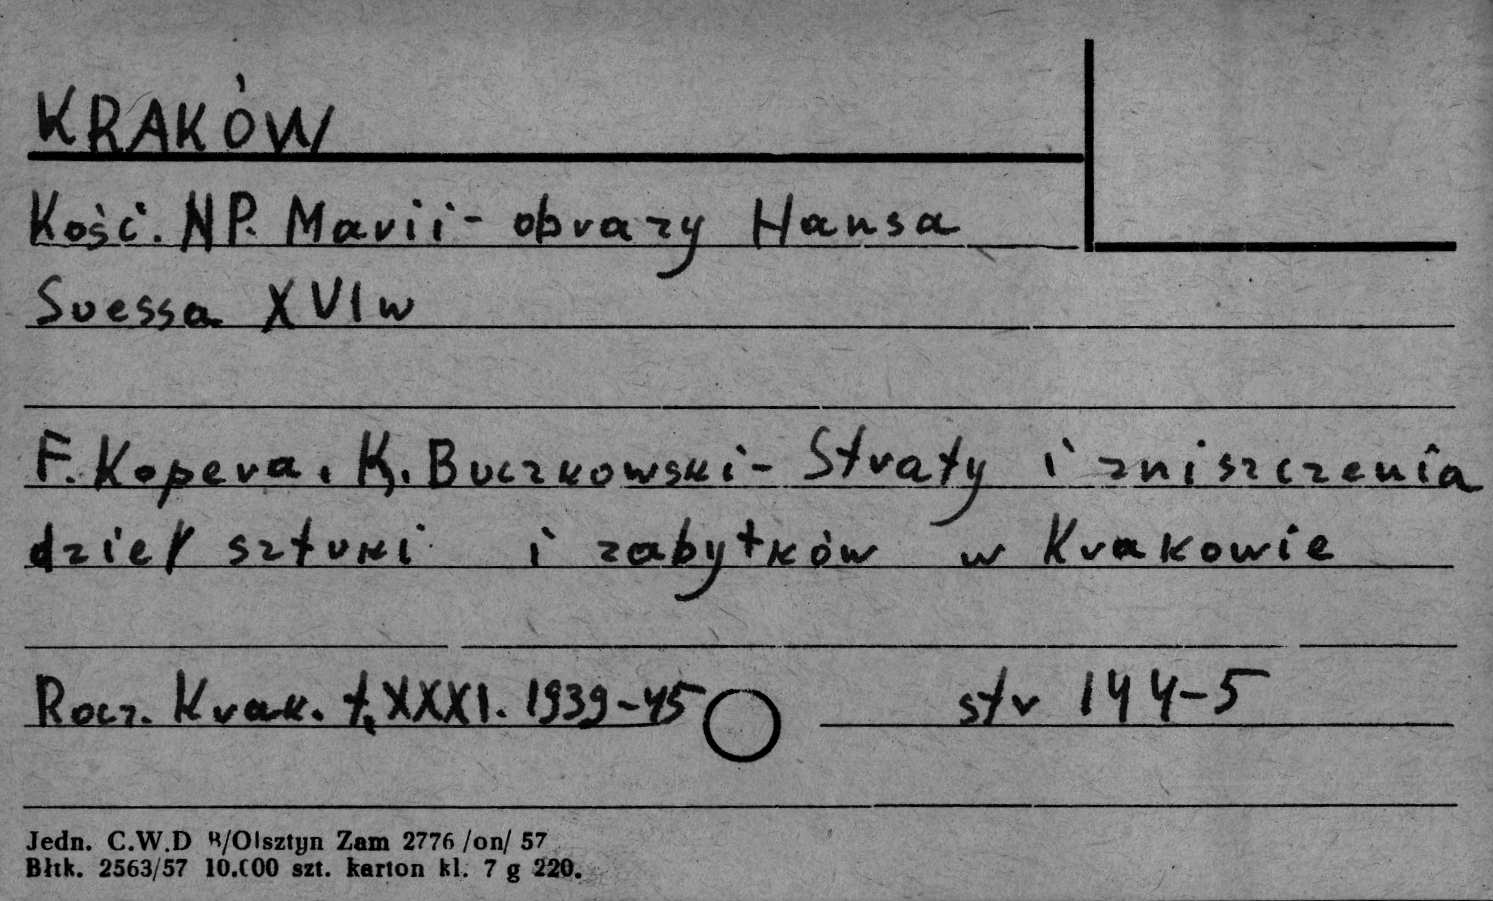 KRAKÓW
Kość. NP. Marii - obrazy Hansa
Suessa XVI w
F. Kopera, K. Buczkowski - Straty i zniszczenia
dzieł sztuki i zabytków w Krakowie
Rocz. Krak. t. XXXI. 1939-45 str 144-5
Jedn. C.W.D B/Olsztyn Zam 2776 /on/ 57
Błtk. 2563/57 10.000 szt. karton kl. 7 g 220.